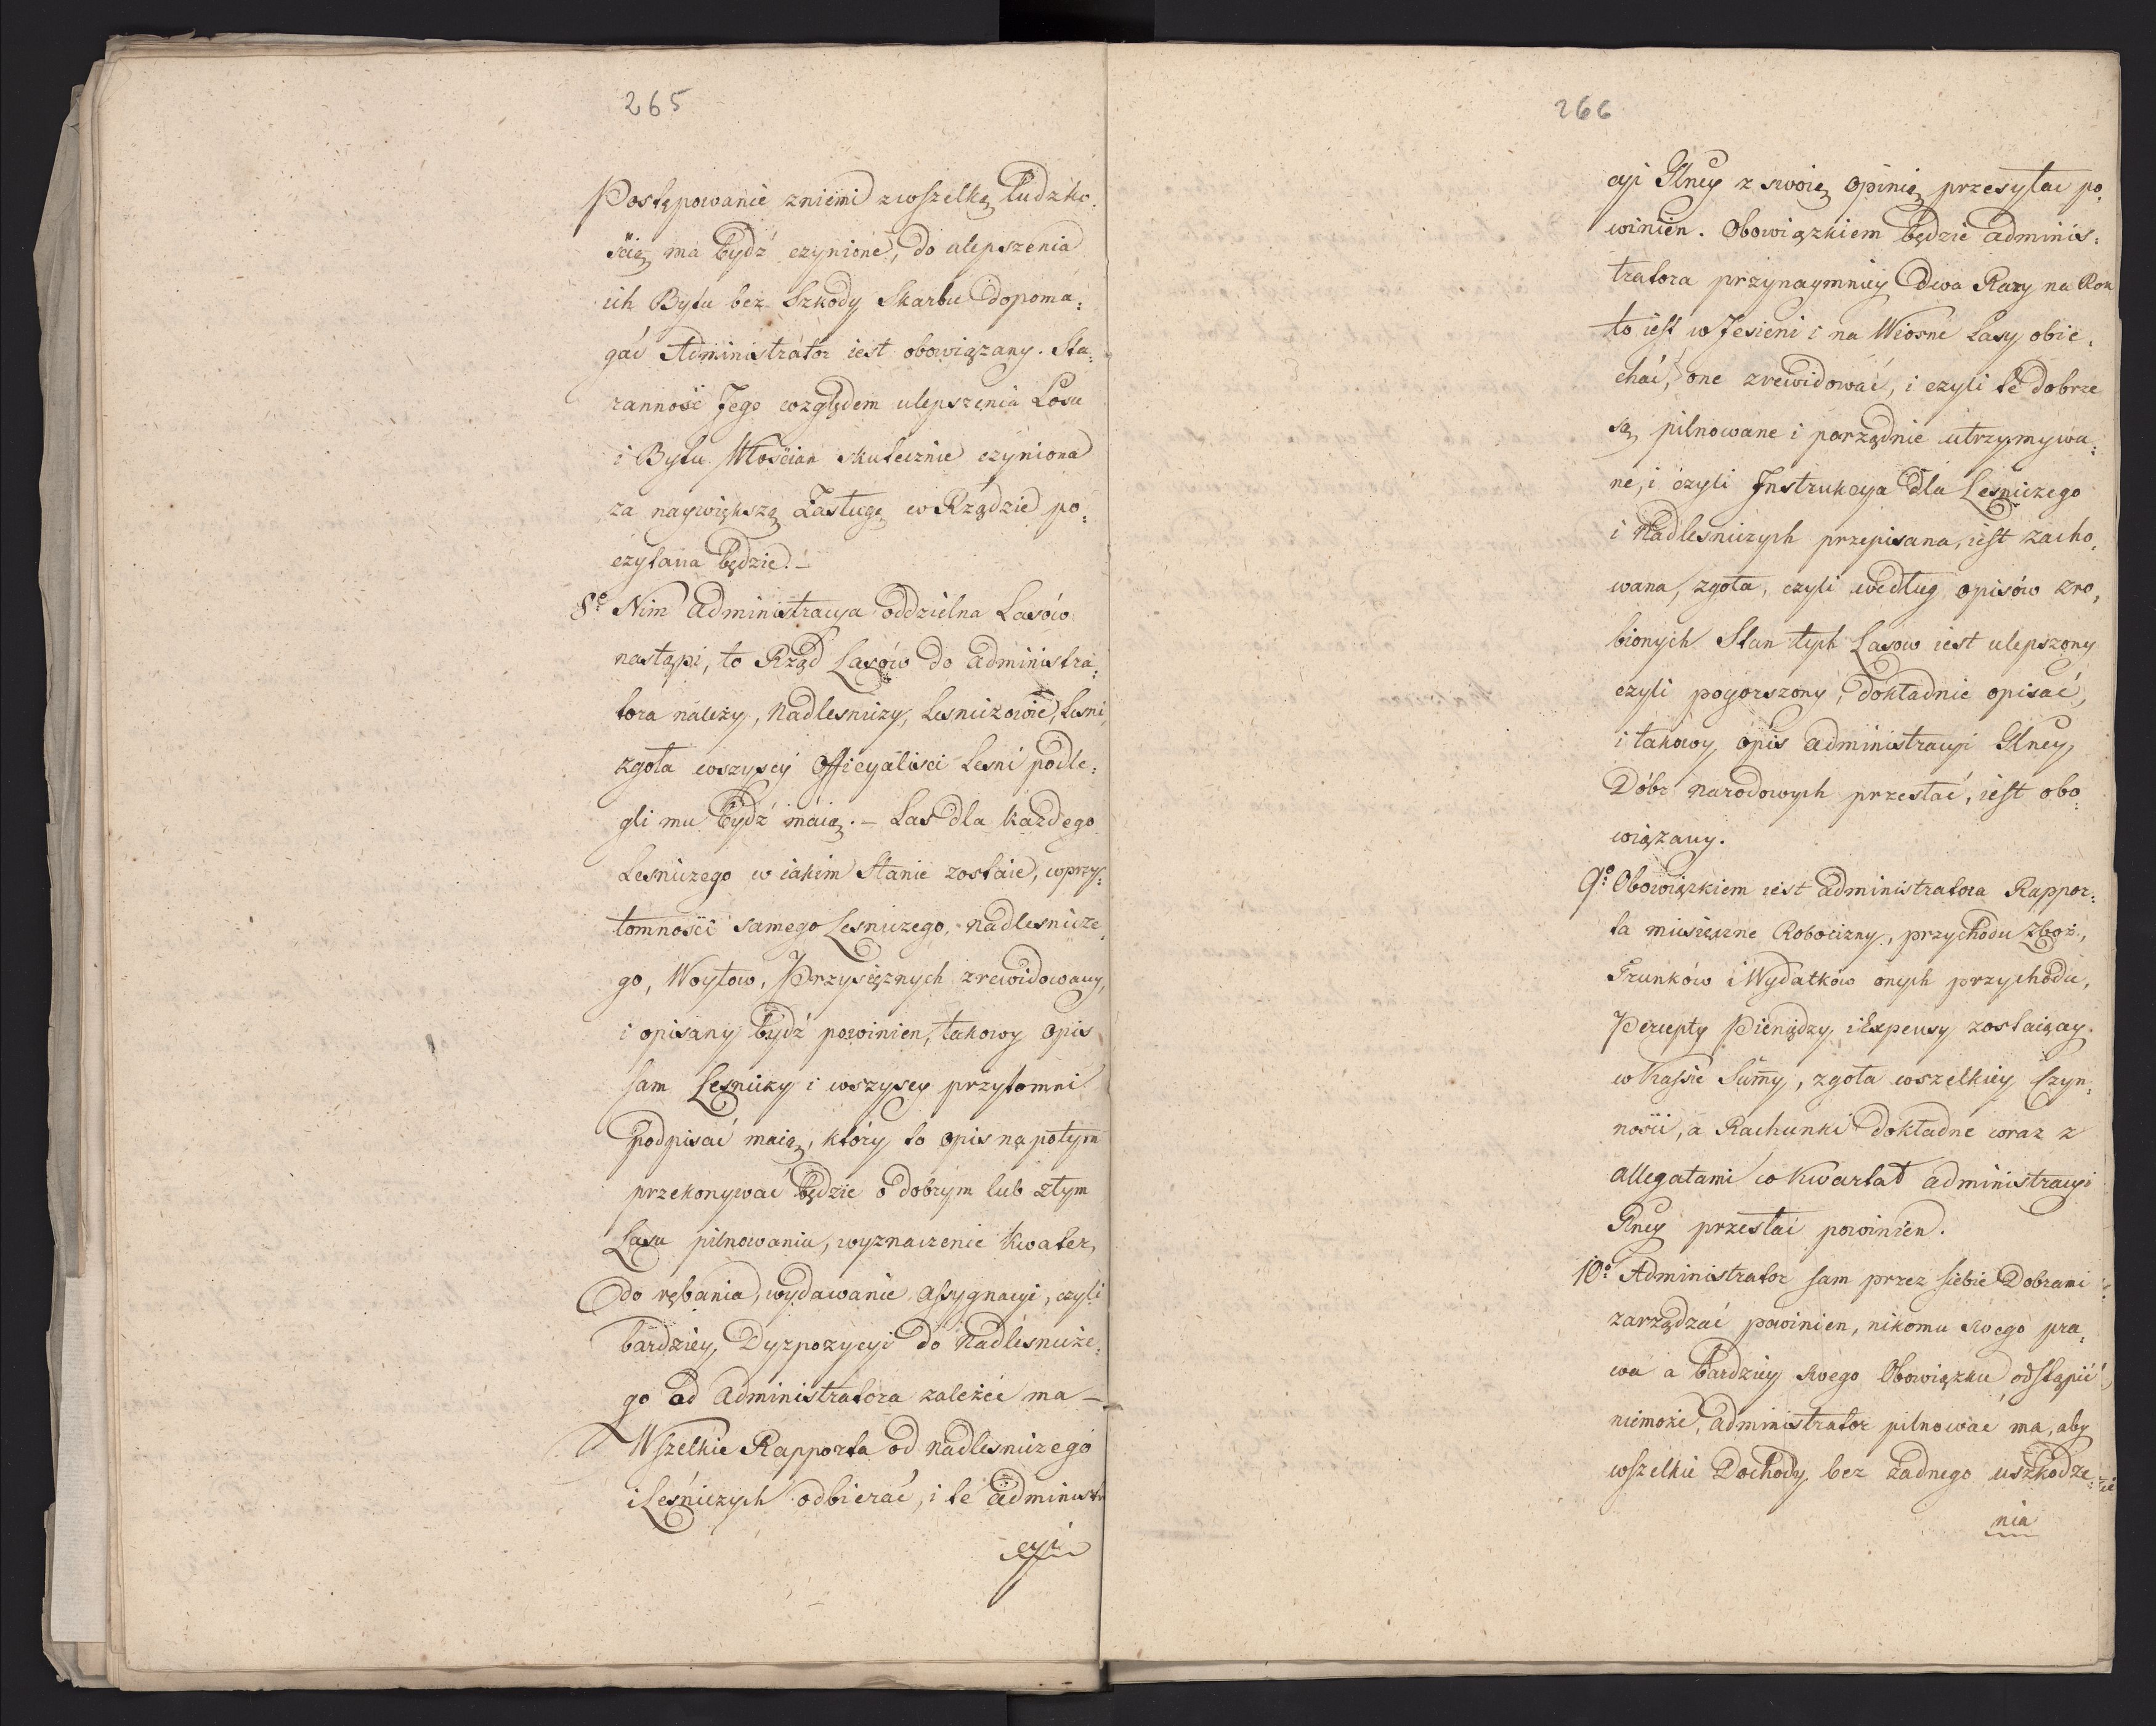 265
Postępowanie zniemi zwszelką Ludzko:
ścią ma bydź czynione, do ulepszenia
ich Bytu bez Szkody Skarbu dopoma:
gać Administrator iest obowiązany. Sta:
ranność Jego względem ulepszenia Losu
i Bytu Włościan skutecznie czyniona
za naywiększą Zasługę w Rządzie po:
czytana będzie. –
8o. Nim Administracya oddzielna Lasów
nastąpi, to Rząd Lasów do Administra:
tora należy, Nadlesniczy, Lesniczowie, Lesni,
zgoła wszyscy Officyalisci Lesni podle:
gli mu bydź maią. – Las dla każdego
Lesniczego w iakim Stanie zostaie, wprzy:
tomności samego Lesniczego, Nadlesnicze,
go, Woytow, Przysięznych zrewidowany,
i opisany bydź powinien, takowy opis
sam Lesniczy i wszyscy przytomni
podpisać maią, który to opis napotym
przekonywać będzie o dobrym lub złym
Lasu pilnowaniu, wyznaczenie Kwater,
do rębania, wydawanie Assygnacyi, czyli
bardziey Dyzpozycyi do Nadlesnicze:
go od Administratora zależeć ma –
Wszelkie Rapporta od Nadlesniczego
i Leśniczych odbierać, i te Administra
cyi
266
cyi Glney z swoią opinią przesyłac po:
winien. Obowiązkiem będzie Adminis:
tratora przynaymniey dwa Razy na Rok
to iest w Jesieni i na Wiosne Lasy obie:
chać, one zrewidować, i czyli te dobrze
są pilnowane i porządnie utrzymywa:
ne, i czyli Instrukcya dla Leśniczego
i Nadlesniczych przepisana, iest zacho,
wana, zgoła, czyli według opisów zro,
bionych Stan tych Lasow iest ulepszony
czyli pogorszony, dokładnie opisać,
i takowy opis Administracyi Glney
Dóbr Narodowych przesłać, iest obo:
wiązany.
9o. Obowiązkiem iest Administratora Rappor:
ta miesięczne Robocizny, przychodu Zboż,
Trunków i Wydatków onych przychodu,
Percepty Pieniędzy i Expensy zostaiącey
w Kassie Sumy, zgoła wszelkiey Czyn:
ności, a Rachunki dokładne wraz z
Allegatami co Kwartał Administracyi
Glney przesłać powinien.
10o. Administrator sam przez siebie Dobrami
zarządzać powinien, nikomu swego pra:
wa a bardziey swego Obowiązku odstąpić
niemoże, Administrator pilnować ma, aby
wszelkie Dochody bez żadnego uszkodze:
nia